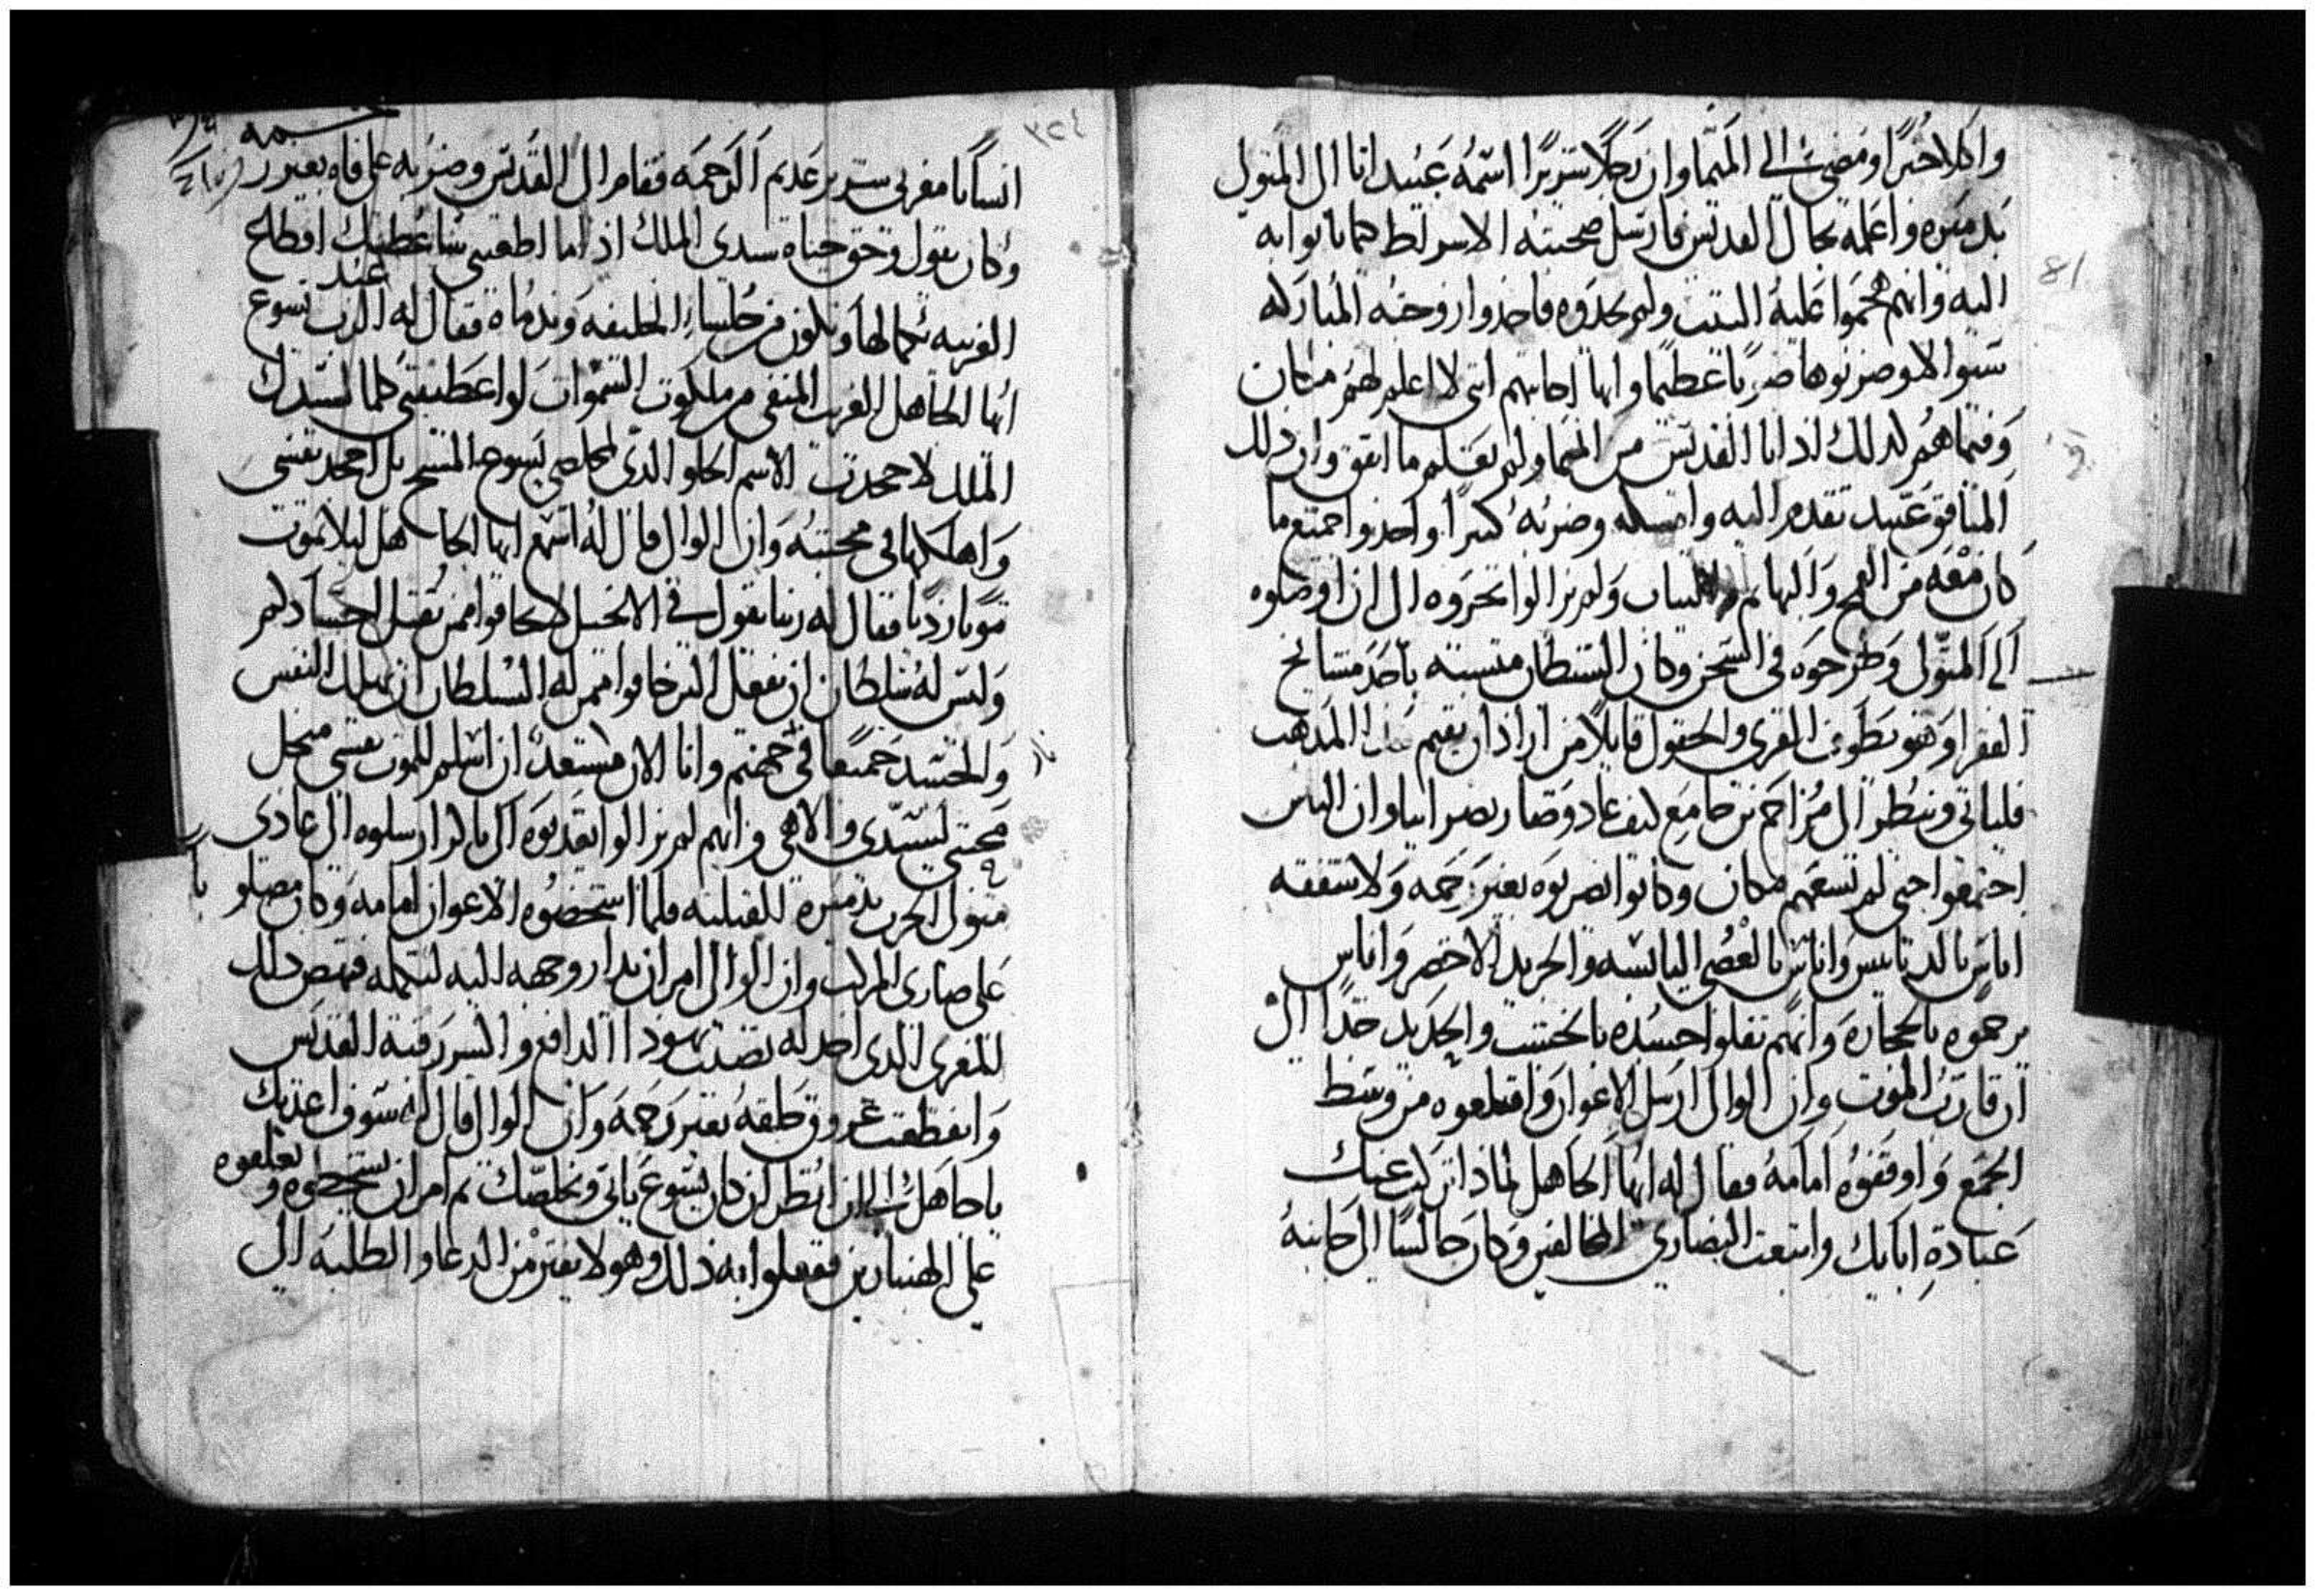 واكلا خبزًا ومضى الى المتما وان رجلًا شريرًا اسمه عبيد اتا الى المتولي
بدميره واعلمه بحال القديس فارسل صحبته الاسرلط هما ياتوا به
اليه وانهم هجموا عليه البيت ولم يجدوه فاخذوا زوجته المباركه
سثوا لا وضربوها ضربًا عظيما وانها اجابتهم انى لا اعلم لهم مكان
وفيما هم لذلك اذ اتا القديس من المتما ولم يعلم ما اتفق وان ذلك
المنافق عبيد تقدم اليه وامسكه وضربه كثيرًا واخذوا جميع ما
كان معه من القمح والبهايم والثياب ولم يزالوا يجروه الى ان اوصلوه
الى المتولي وطرحوه في السجن وكان الشيطان متشبه باحد مشايخ
الفقرا وهو يطوف القرى والحقول قايلًا من اراد ان يقيم هذا المذهب
فلياتي وينظر الى مزاحم بن جامع كيف عاد وصار نصرانيا وان الناس
اجتمعوا حتى لم تسعهم مكان وكانوا يضربوه بغير رحمه ولا شفقه
اناس بالدبابيس واناس بالعصي اليابسه والجريد الاخضر واناس
يرجموه بالحجاره وانهم ثقلوا جسده بالخشب والحديد جدًا الى
ان قارب الموت وان الوالى ارسل الاعوان واقتلعوه من وسط
الجمع واوقفوه امامه فقال له ايها الجاهل لماذا تركت عنك
عبادة ابايك واتبعت النصارى المخالفين وكان جالسًا الى جانبه
81
٣٢٤
انسانا مغربى شرير عديم الرحمه فقام الى القديس وضربه على فاه بغير
وكان يقول وحق حياه سيدى الملك اذا ما اطعتنى انا اعطيك اقطاع
القريه بكمالها وتكون من جلسا الخليفه وندماه فقال له القديس يسوع
ايها الجاهل الغريب المنفى من ملكوت السموات لو اعطيتنى كلما لسيدك
الملك لا جحدت الاسم الحلو الذى لمخلصي يسوع المسيح بل اجحد نفسى
واهلكها في محبته وان الوالى قال له اسمع ايها الجاهل ليلا تموت
موتا رديا فقال له ربنا يقول في الانجيل لا تخافوا ممن يقتل اجسادكم
وليس له سلطان ان يفعل اكثر خافوا ممن له السلطان ان يهلك النفس
والجسد جميعا في جهنم وانا الان مستعد ان اسلم للموت نفسى من اجل
محبتى لسيدى والاهي وانهم لم يزالوا يعذبوه الى باكر ارسلوه الى عادى
متولى الحرب بدميره القبليه فلما استحضروه الاعوان امامه وكان مصلوبا
على صارى المركب وان الوالى امر ان يدار وجهه اليه ليكلمه فنهض ذلك
المغربى الذى اخذ له نصيب يهودا الدافع واكسر رقبة القديس
وانقطعت عروق حلقه بغير رحمه وان الوالى قال له سوف اعذبك
يا جاهل الى ان انظر ان كان يسوع ياتى ويخلصك ثم امر ان يشحطوه ويعلقوه
على الهنبازين ففعلوا به ذلك وهو لا يفتر من الدعا والطلبه الى